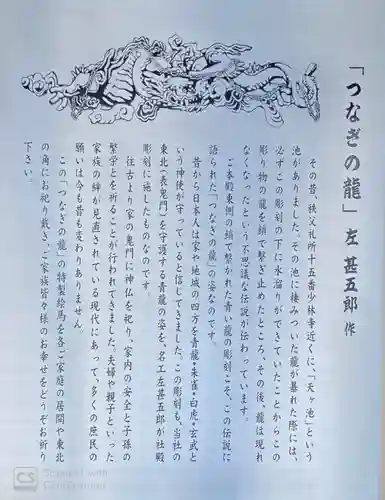 「つなぎの龍」 左 甚五郎 作
その昔、秩父札所十五番少林寺近くに、「天ヶ池」という
池がありました。その池に棲みついた龍が暴れた際には、
必ずこの彫刻の下に水溜りができていたことからこの
彫り物の龍を鎖で繋ぎ止めたところ、その後、龍は現れ
なくなったという不思議な伝説が伝わっています。
ご本殿東側の鎖で繋がれた青い龍の彫刻こそ、この伝説に
語られた「つなぎの龍」の姿なのです。
昔から日本人は家や地域の四方を青龍・朱雀・白虎・玄武と
いう神使が守っていると信じてきました。この彫刻も、当社の
東北(表鬼門)を守護する青龍の姿を、名工左甚五郎が社殿
彫刻に施したものなのです。
往古より家の鬼門に神仏を祀り、家内の安全と子孫の
繁栄とを祈ることが行われてきました。夫婦や親子といった
家族の絆が見直されている現代にあって、多くの庶民の
願いは今も昔も変わりありません。
この「つなぎの龍」の特製絵馬を各ご家庭の居間や東北
の角にお祀り戴き、ご家族皆々様のお幸せをどうぞお祈り
下さい。
CS
Scanned with
CamScanner